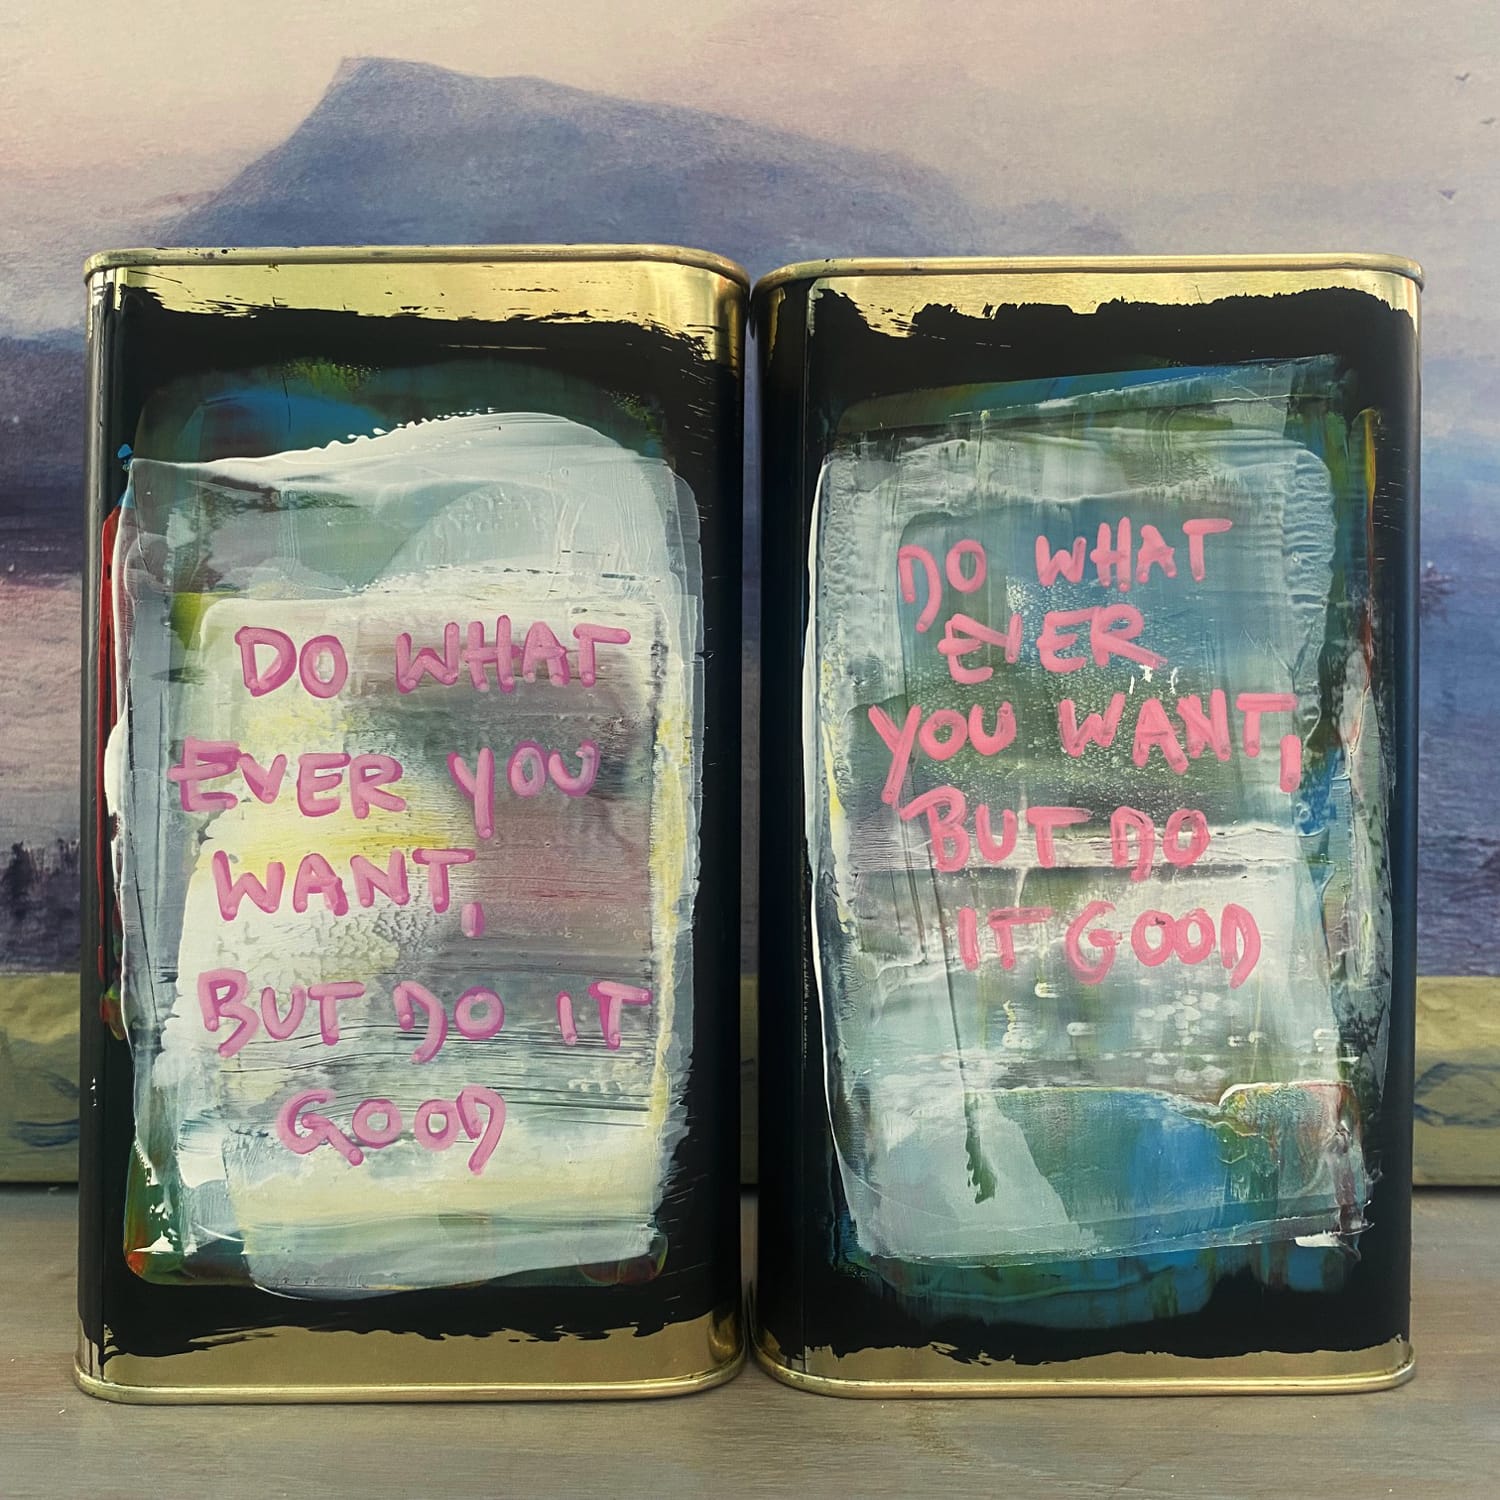 DO WHAT
EVER YOU
WANT,
BUT DO IT
GOOD
DO WHAT
EVER
YOU WANT,
BUT DO
IT GOOD